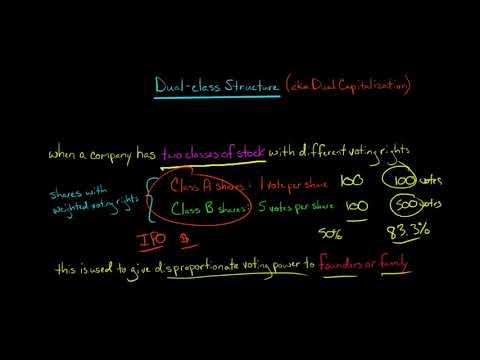 Dual-class Structure (aka Dual Capitalization)
when a company has two classes of stock with different voting rights
shares with weighted voting rights
Class A shares: 1 vote per share 100 100 votes
Class B shares: 5 votes per share 100 500 votes
IPO $ 50% 83.3%
this is used to give disproportionate voting power to founders or family